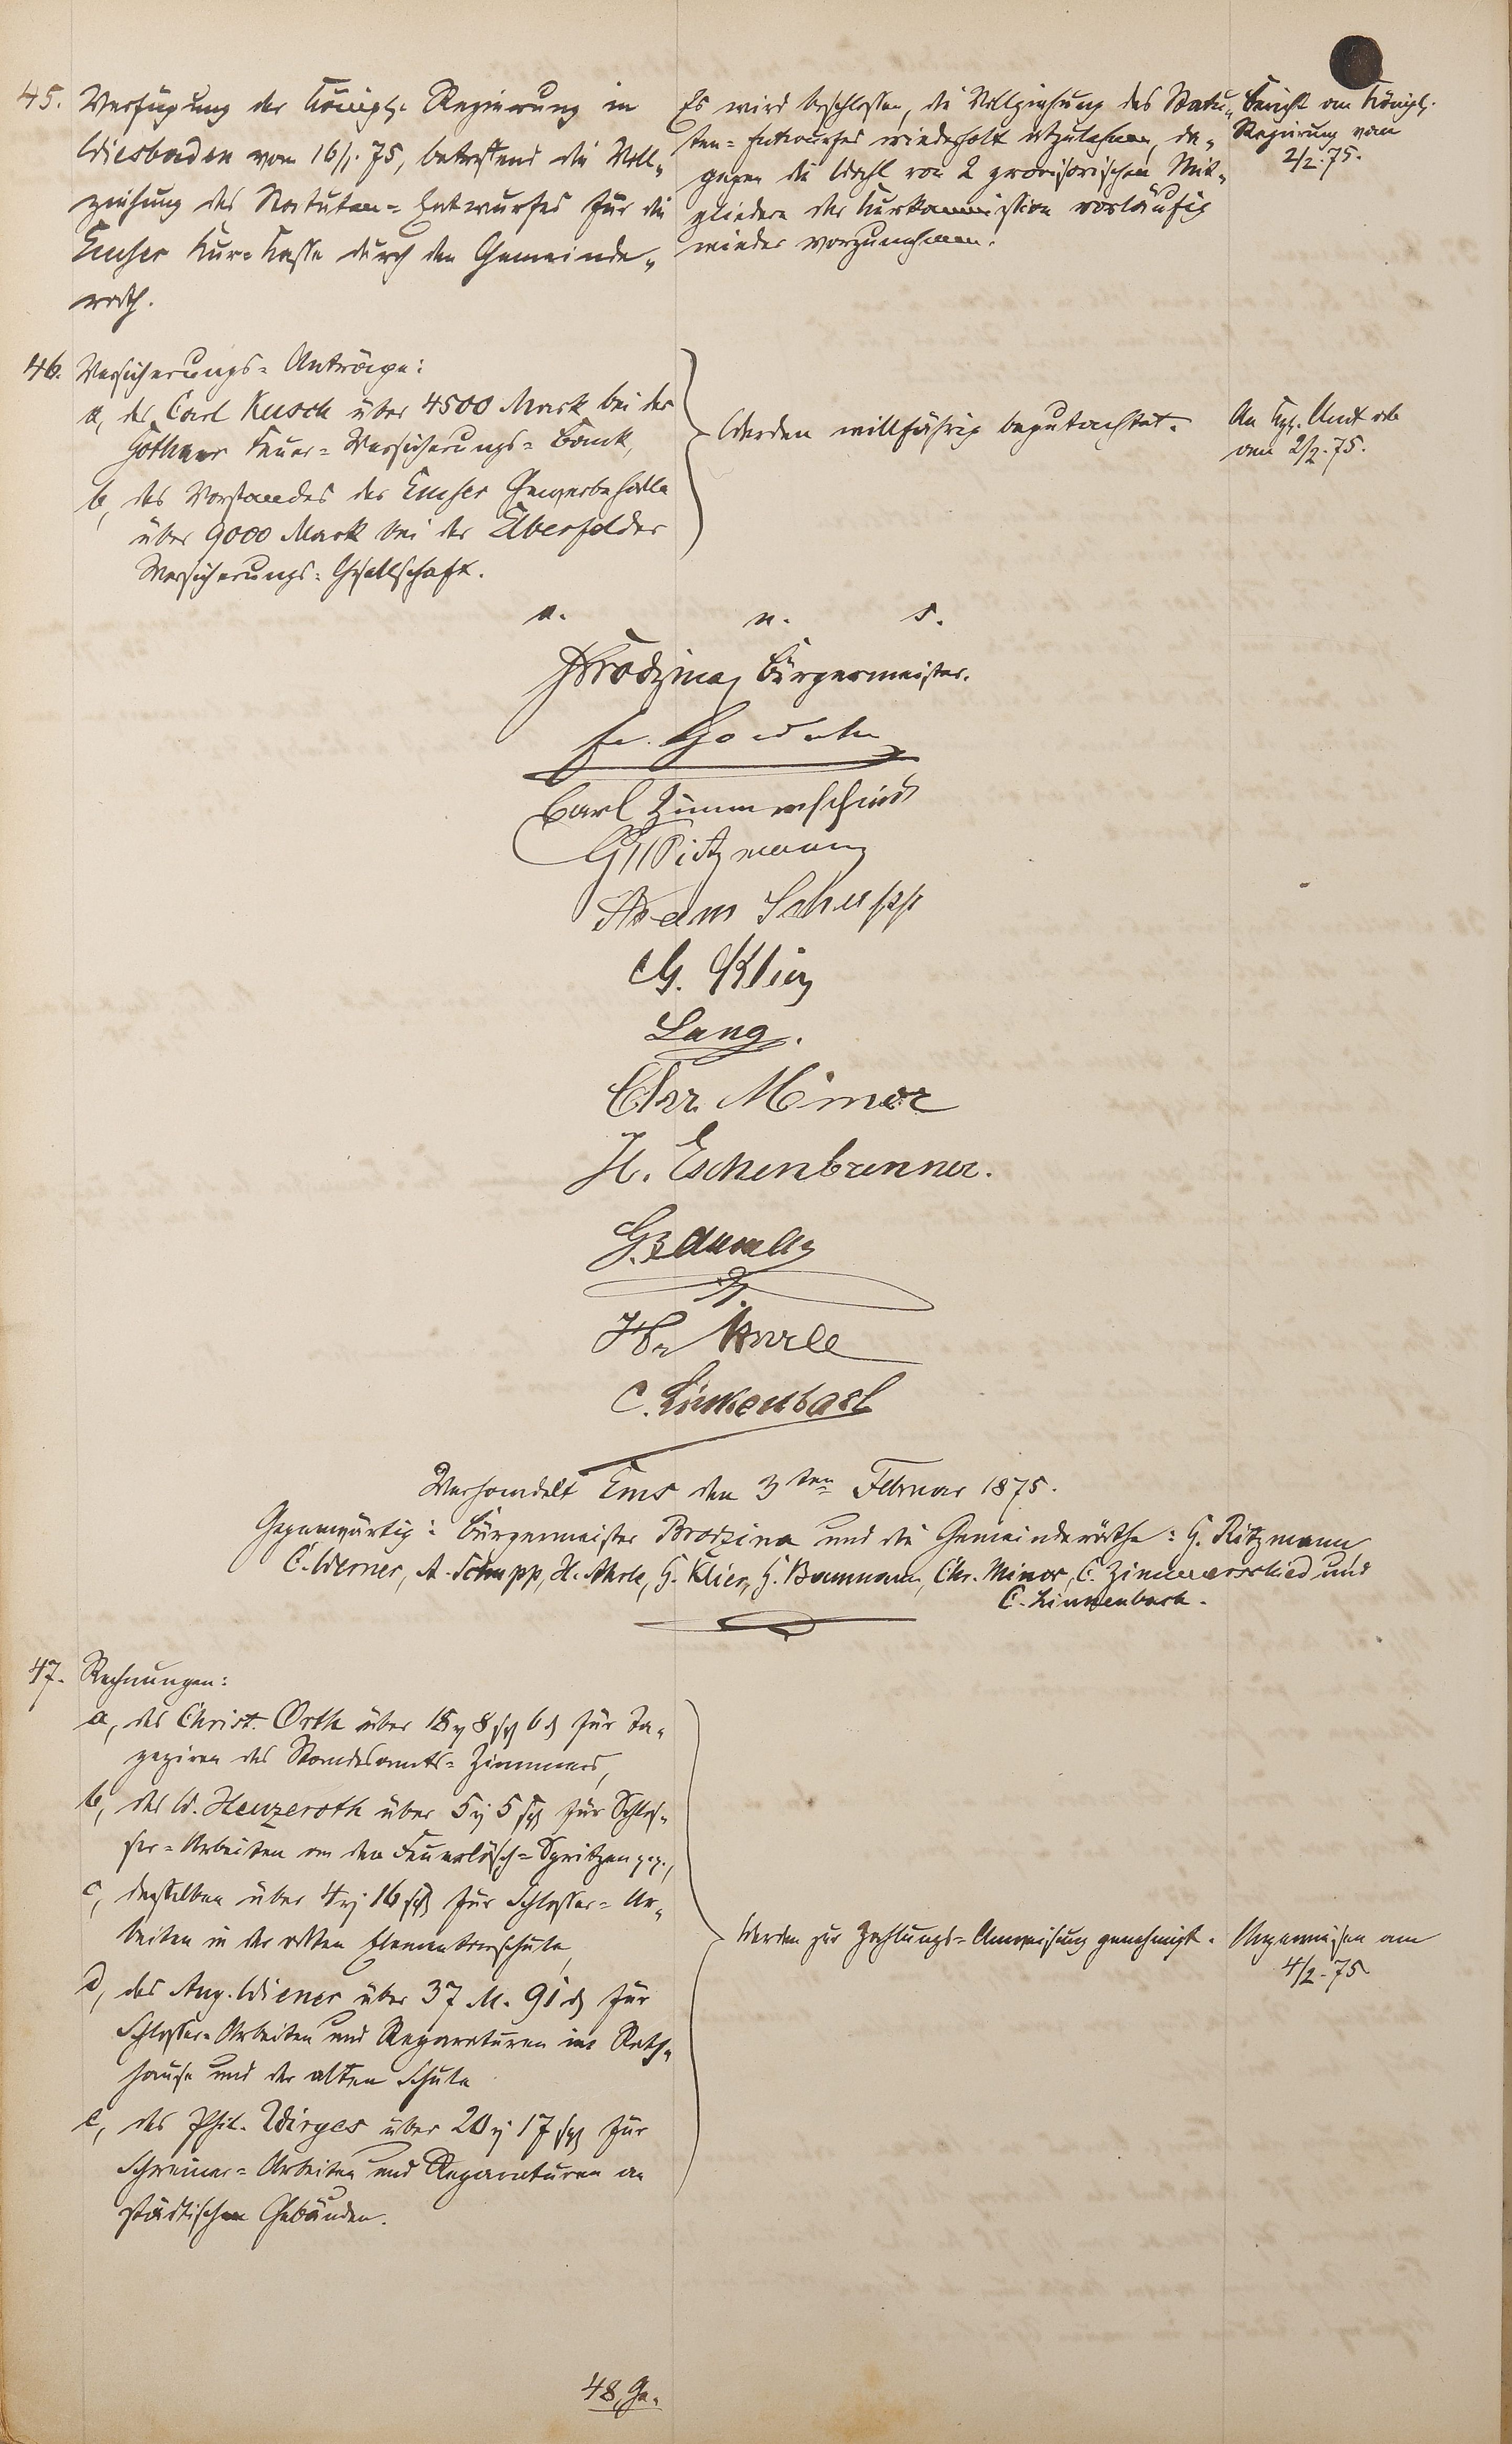 45. Verfügung der Königl. Regierung in
Wiesbaden vom 16/1. 75, betreffend die Voll-
ziehung des Statuten-Entwurfes für die
Emser Kur-Kasse durch den Gemeinde-
rath.
Es wird beschlossen, die Vollziehung des Statu-
ten-Entwurfes wiederholt abzulehnen, da-
gegen die Wahl von 2 provisorischen Mit-
gliedern der Kurkommission vorläufig
wieder vorzunehmen.
Bericht an Königl.
Regierung vom
2/2. 75.
46. Versicherungs-Anträge:
a, des Carl Kusch über 4500 Mark bei der
Gothaer Feuer-Versicherungs-Bank,
b, des Vorstandes der Emser Gewerbehalle
über 9000 Mark bei der Elberfelder
Versicherungs-Gesellschaft.
Werden willfährig begutachtet.
An Kgl. Amt
vom 2/2. 75.
a. u. s.
Brodzina, Bürgermeister.
Carl Zimmerschied
G. Ritzmann
Adam Schupp
G. Klier
Lang.
Chr. Minor
H. Eschenbrenner.
G. Baumann
C. Linkenbach
Verhandelt Ems den 3ten Februar 1875.
Gegenwärtig: Bürgermeister Brodzina und die Gemeinderäthe: G. Ritzmann
C. Werner, A. Schupp, H. G. Klier, G. Baumann, Chr. Minor, C. Zimmerschied und
C. Linkenbach.
47. Rechnungen:
a, des Christ. Orth über 18 8 sg 6 d für Ta-
peziren des Standesamts-Zimmers,
b, des W. Henzeroth über 5 5 sg für Schlos-
ser-Arbeiten an den Feuerlösch-Spritzen pp.,
c, desselben über 4 16 sg für Schlosser-Ar-
beiten in der alten Elementarschule,
d, des Aug. Wiener über 37 M. 91 d für
Schlosser-Arbeiten und Reparaturen im Rath-
hause und der alten Schule
e, des Phil. Wirges über 20 17 sg für
Schreiner-Arbeiten und Reparaturen an
städtischen Gebäuden.
Werden zur Zahlungs-Anweisung genehmigt.
Angewiesen am
4/2. 75
48, Ge-